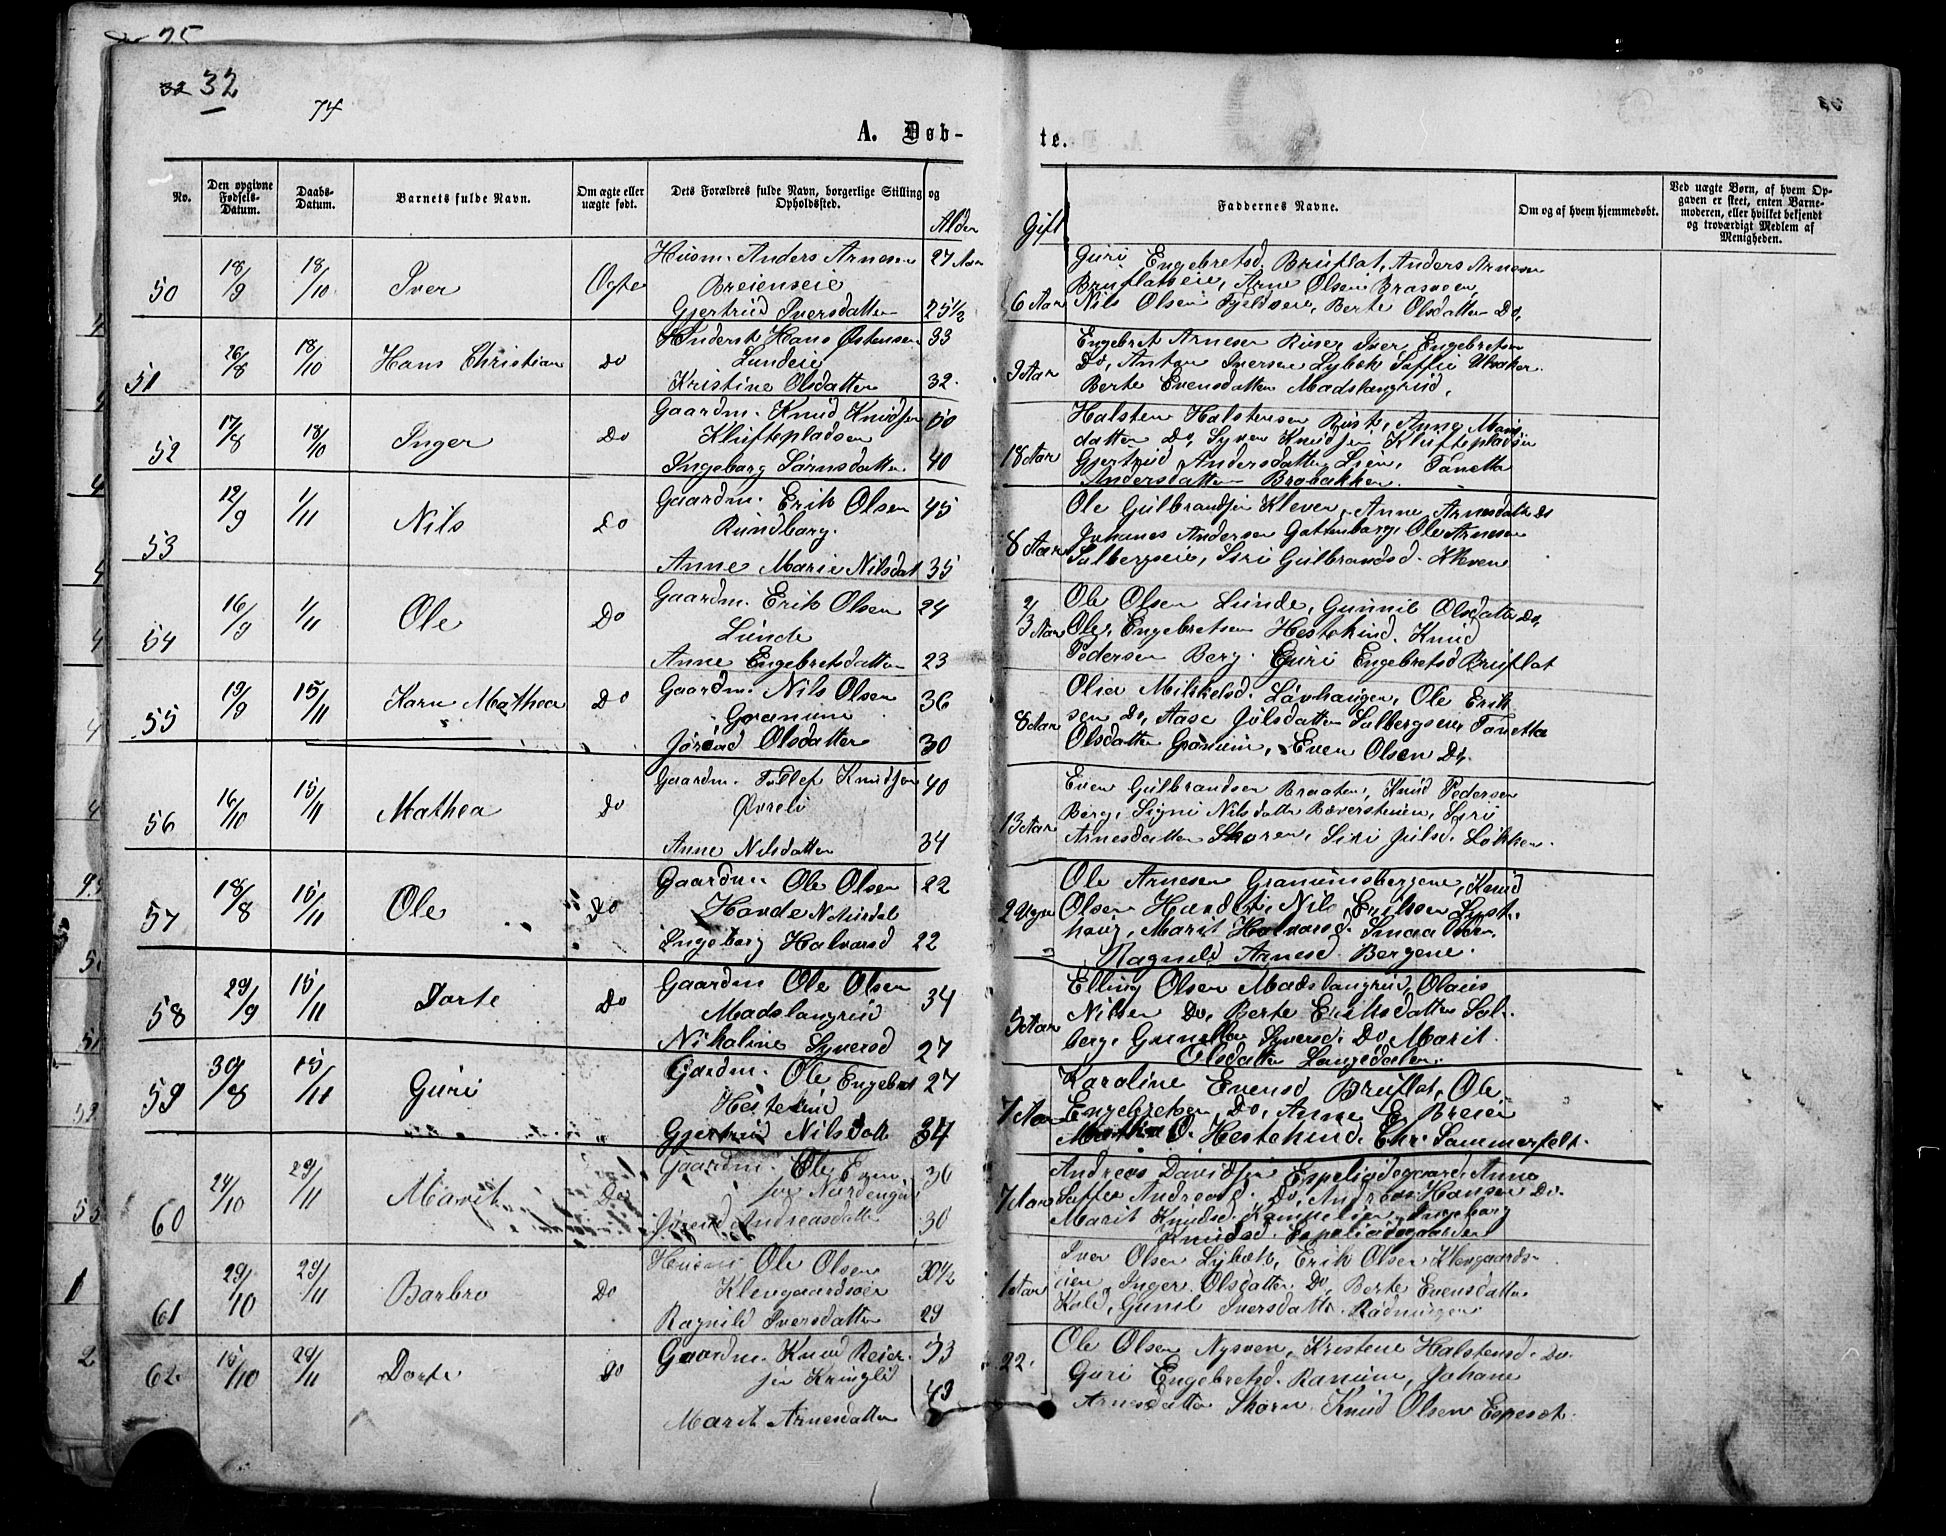 32 32
74
A. Døb-
te.
No.
Den opgivne Fødsels-Datum.
Daabs-Datum.
Barnets fulde Navn.
Om ægte eller uægte født.
Dets Forældres fulde Navn, borgerlige Stilling og Opholdssted.
Alder
Gift
Faddernes Navne.
Om og af hvem hjemmedøbt.
Ved uægte Børn, af hvem Opgaven er skeet, enten Barnemoderen, eller hvilket bekjendt og troværdigt Medlem af Menigheden.
50 18/9 18/10 Iver Ægte Husm. Anders Arnesen 27 Aar
Breienseie
Gjertrud Iversdatter 25 1/2
6 Aar
Guri Engebretsd. Bruflat, Anders Arnesen
Bruflatseie, Arne Olsen
Nils Olsen Berte Olsdatter Do,
51 26/8 18/10 Hans Christian Do Hans Østensen 33
Lundeie
Kristine Olsdatter 32.
3 Aar
Engebret Arnesen Iver Engebretsen
Do, Anton Iversen Lybek
Berte Evensdatter Madslangrud,
52 17/8 18/10 Inger Do Gaardm. Knud Knudsen 50
Kluftepladsen
Ingeborg 40
18 Aar
Halsten Halstensen Rust, Anne
datter Do, Syver Knudsen Kluftepladsen
Gjertrud Andersdatter Lien,
Andersdatter Brobakken.
53 12/9 1/11 Nils Do Gaardm. Erik Olsen 45
Rundborg.
Anne Marie Nilsdat 35
8 Aar
Ole Gulbrandsen Kleven, Anne Arnesdatter Do
Johanes Andersen Ole Arnesen
Salbergseie, Siri Gulbrandsd. Kleven
54 16/9 1/11 Ole Do Gaardm. Erik Olsen 24
Lunde
Anne Engebretsdatter 23
2/3 Aar
Ole Olsen Lunde, Gunnil Olsdatter Do,
Ole Engebretsen Hestekind. Knud
Pedersen Berg. Guri Engebretsd Bruflat
55 19/9 15/11 Karn Mathea Do Gaardm. Nils Olsen 36
Granum
Jørend Olsdatter 30
8 Aar
Løvhaugen, Ole Erik
sen Do, Aase Julsdatter
Olsdatter Granum, Even Olsen Do,
56 16/10 15/11 Mathea Do Gaardm. Tollef Knudsen 40
Øvreli
Anne Nilsdatter 34
13 Aar
Even Gulbrandsen Braaten, Knud Pedersen
Berg, Signi Nilsdatter Siri
Arnesdatter Skoren, Siri Julsd. Løkken.
57 18/8 15/11 Ole Do Gaardm. Ole Olsen 22
Ingeborg Halvorsd 22
2
Ole Arnesen Knud
Olsen Nils
haug, Marit Halvorsd.
Ragnild Arnesd. Bergene.
58 29/9 15/11 Dorte Do Gaardm Ole Olsen 34
Madslangrud
Nikoline Syversd 27
5 Aar
Elling Olsen Madslangrud, Olaus
Nilsen Do, Berte Eriksdatter Sal-
berg, Syversd. Do Marit
Olsdatter Langedalen.
59 30/8 15/11 Guri Gardm. Ole Engebret 27
Hestekind
Gjertrud Nilsdatt 34
7 Aar
Karoline Evensd Bruflat, Ole
Engebretsen Do, Anne E. Breien
O. Hestekind. Chr. Sommerfelt.
60 24/10 29/11 Marit Do Gaardm. Ole Even 30
sen Nordengen
Jørend Andreasdatter 30
7 Aar
Andreas Davidsen Espeliødegaard, Anne
Andreasd. Do, Andreas Hansen Do.
Marit Knudsd. Ingeborg
Knudsd. Espeliødegaarden
61 29/10 29/11 Barbro Do Husm Ole Olsen 30 1/2
Klevgaardseie
Ragnild Iversdatter 29
1 Aar
Iver Olsen Lybek, Erik Olsen Klevgaards-
eien, Inger Olsdatter Do, Berte Evensdatter
Gunil Iversdatter
62 15/10 29/11 Dorte Do Gaardm. Knud Reier 53
sen Kringlid
Marit Arnesdatter 43
22.
Ole Olsen Nysveen, Kristine Halstensd. Do.
Guri Engebretsd. Ranum, Johane
Arnesdatter Skoren Knud Olsen